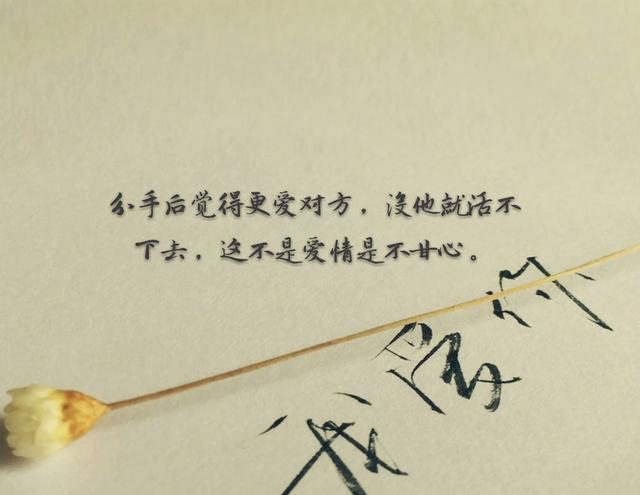 分手后觉得更爱对方，沒他就活不
下去，这不是爱情是不甘心。
我爱你